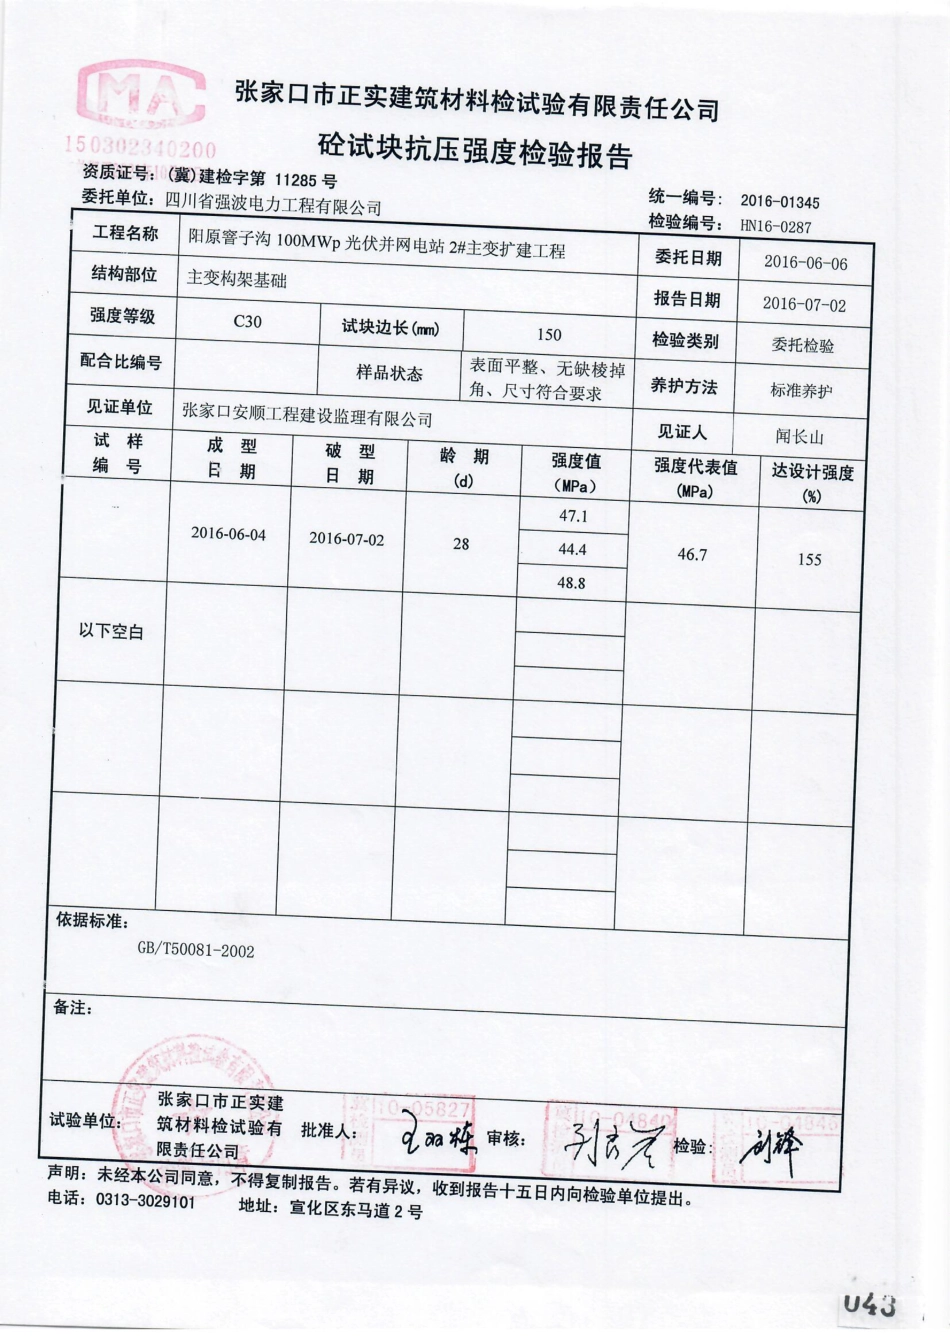 MA
150302340200
张家口市正实建筑材料检试验有限责任公司
砼试块抗压强度检验报告
资质证号：(冀)建检字第 11285 号
委托单位：四川省强波电力工程有限公司
统一编号： 2016-01345
检验编号： HN16-0287
工程名称 阳原窨子沟 100MWp 光伏并网电站 2#主变扩建工程 委托日期 2016-06-06
结构部位 主变构架基础 报告日期 2016-07-02
强度等级 C30 试块边长(mm) 150 检验类别 委托检验
配合比编号 样品状态 表面平整、无缺棱掉
角、尺寸符合要求 养护方法 标准养护
见证单位 张家口安顺工程建设监理有限公司 见证人 闻长山
试 样 成 型 破 型 龄 期 强度值 强度代表值 达设计强度
编 号 日 期 日 期 (d) (MPa) (MPa) (%)
2016-06-04 2016-07-02 28 47.1 46.7 155
44.4
48.8
以下空白
依据标准：
GB/T50081-2002
备注：
试验单位： 张家口市正实建
筑材料检试验有
限责任公司
批准人： 审核： 检验：
10-05827
10-04840
声明：未经本公司同意，不得复制报告。若有异议，收到报告十五日内向检验单位提出。
电话：0313-3029101 地址：宣化区东马道 2 号
043